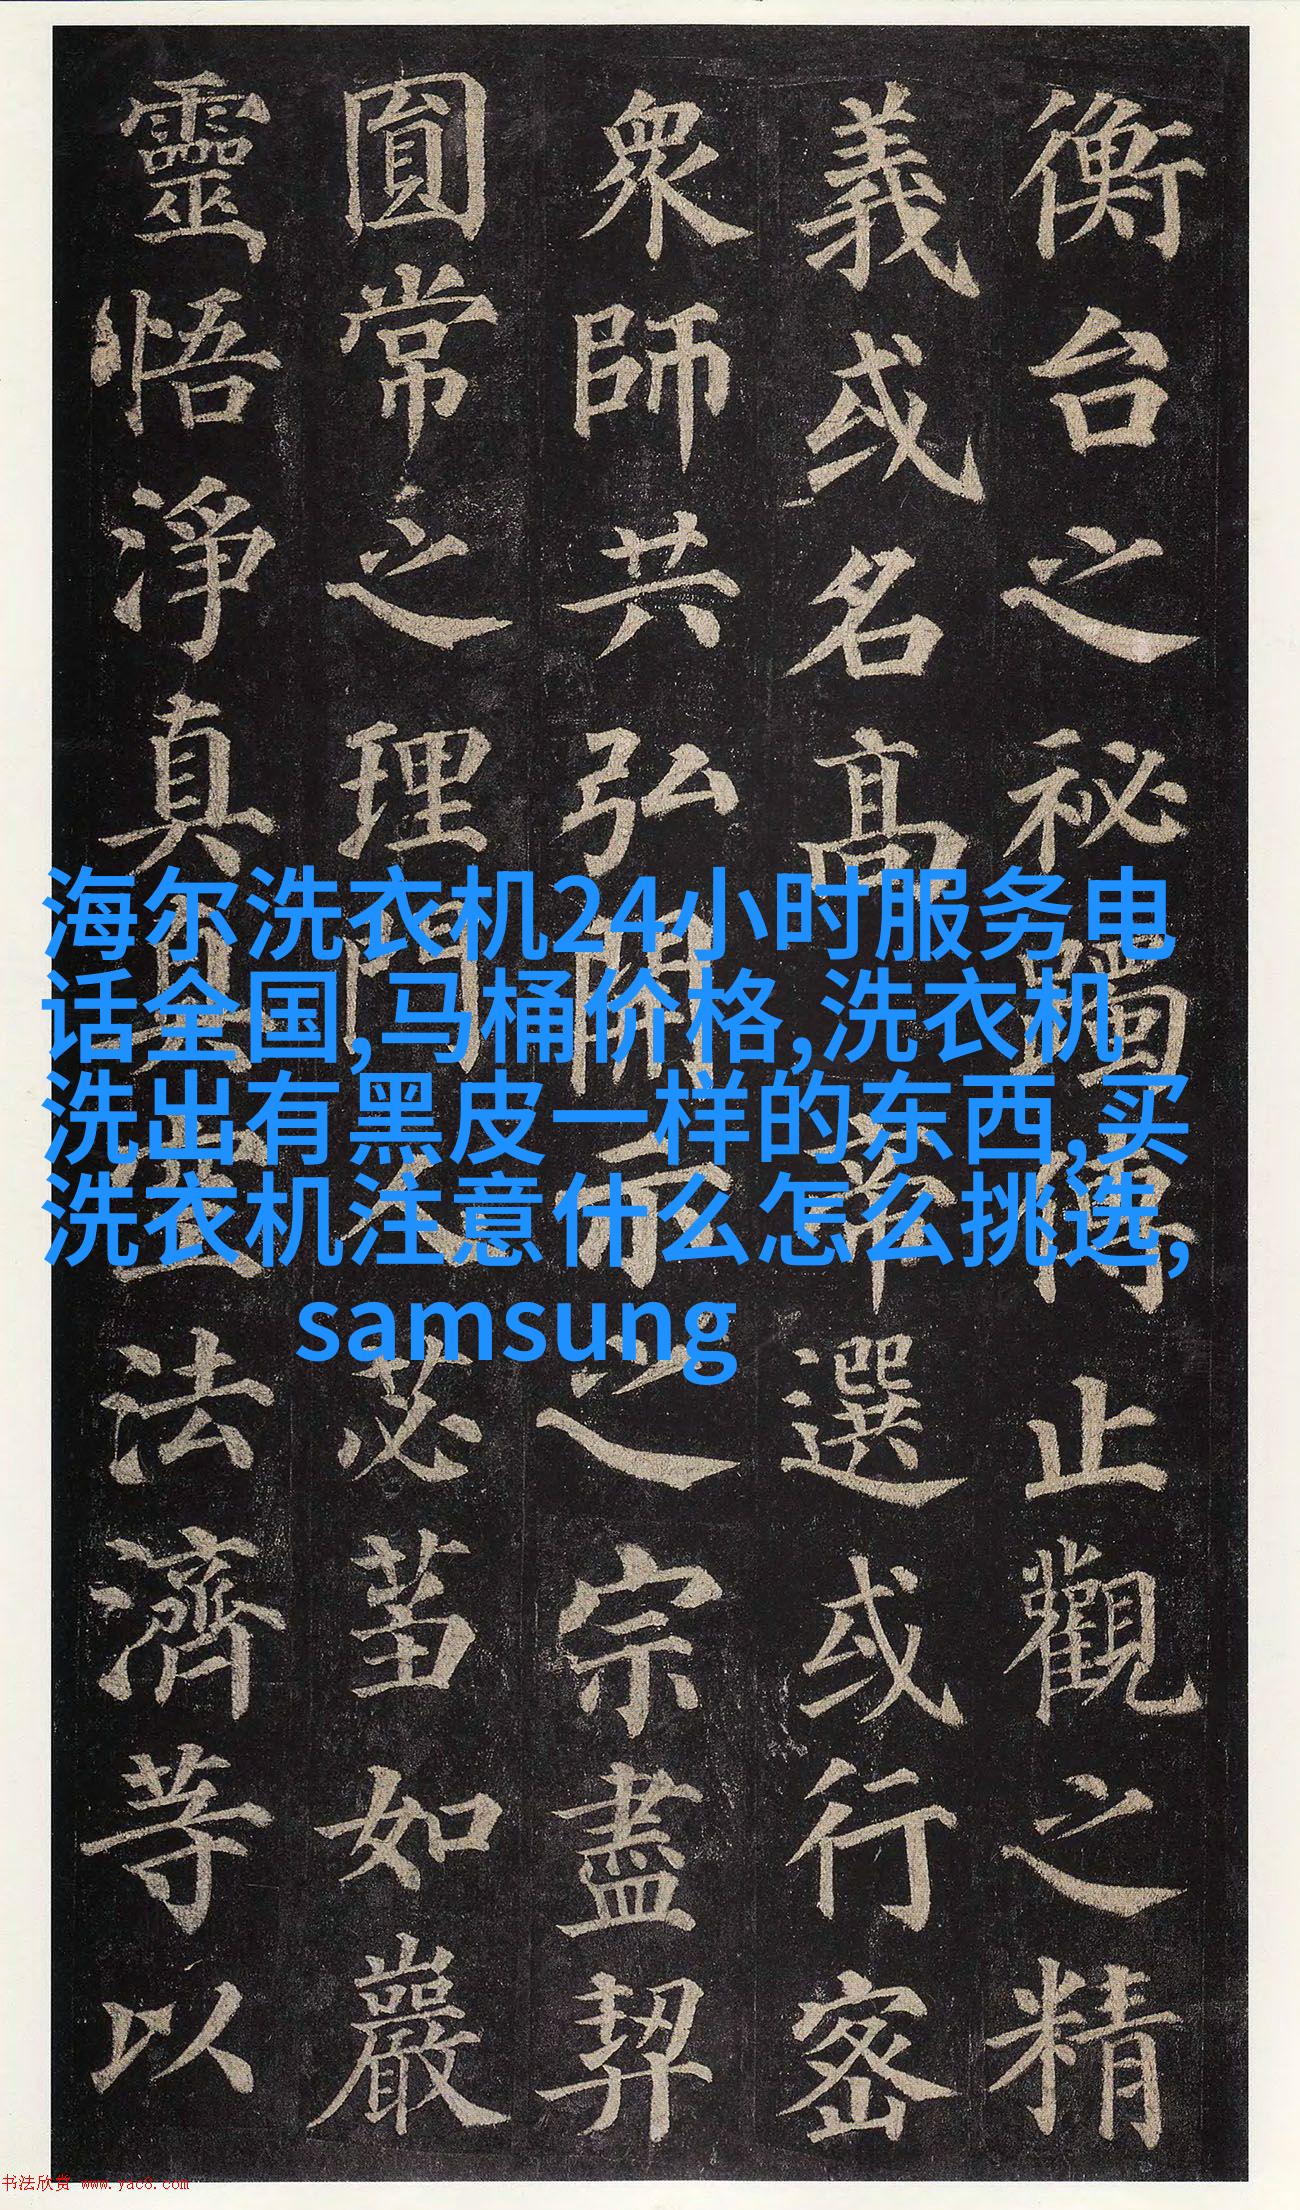 衡台之秘躅傳止觀之精
義或名高帝選或行密
眾師共弘開示之宗盡契
圓常之理門人苾蒭如巖
靈悟淨真真空法濟等以
海尔洗衣机24小时服务电
话全国,马桶价格,洗衣机
洗出有黑皮一样的东西,买
洗衣机注意什么怎么挑选,
samsung
书法欣赏 www.yac8.com